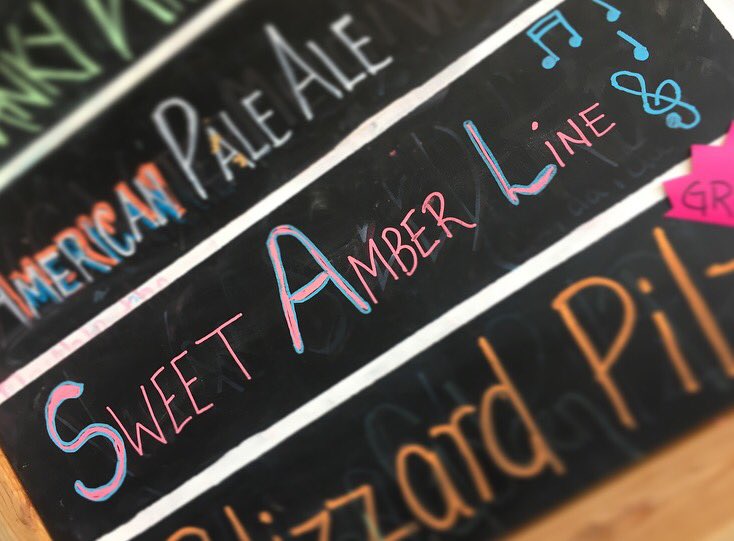 AMERICAN PALE ALE
SWEET AMBER LINE
GR
Blizzard Pil